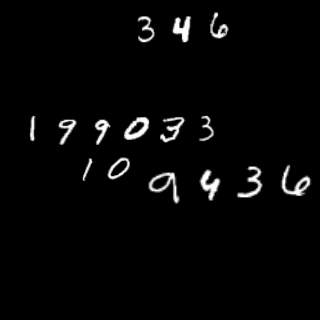 346
199033
10
9436